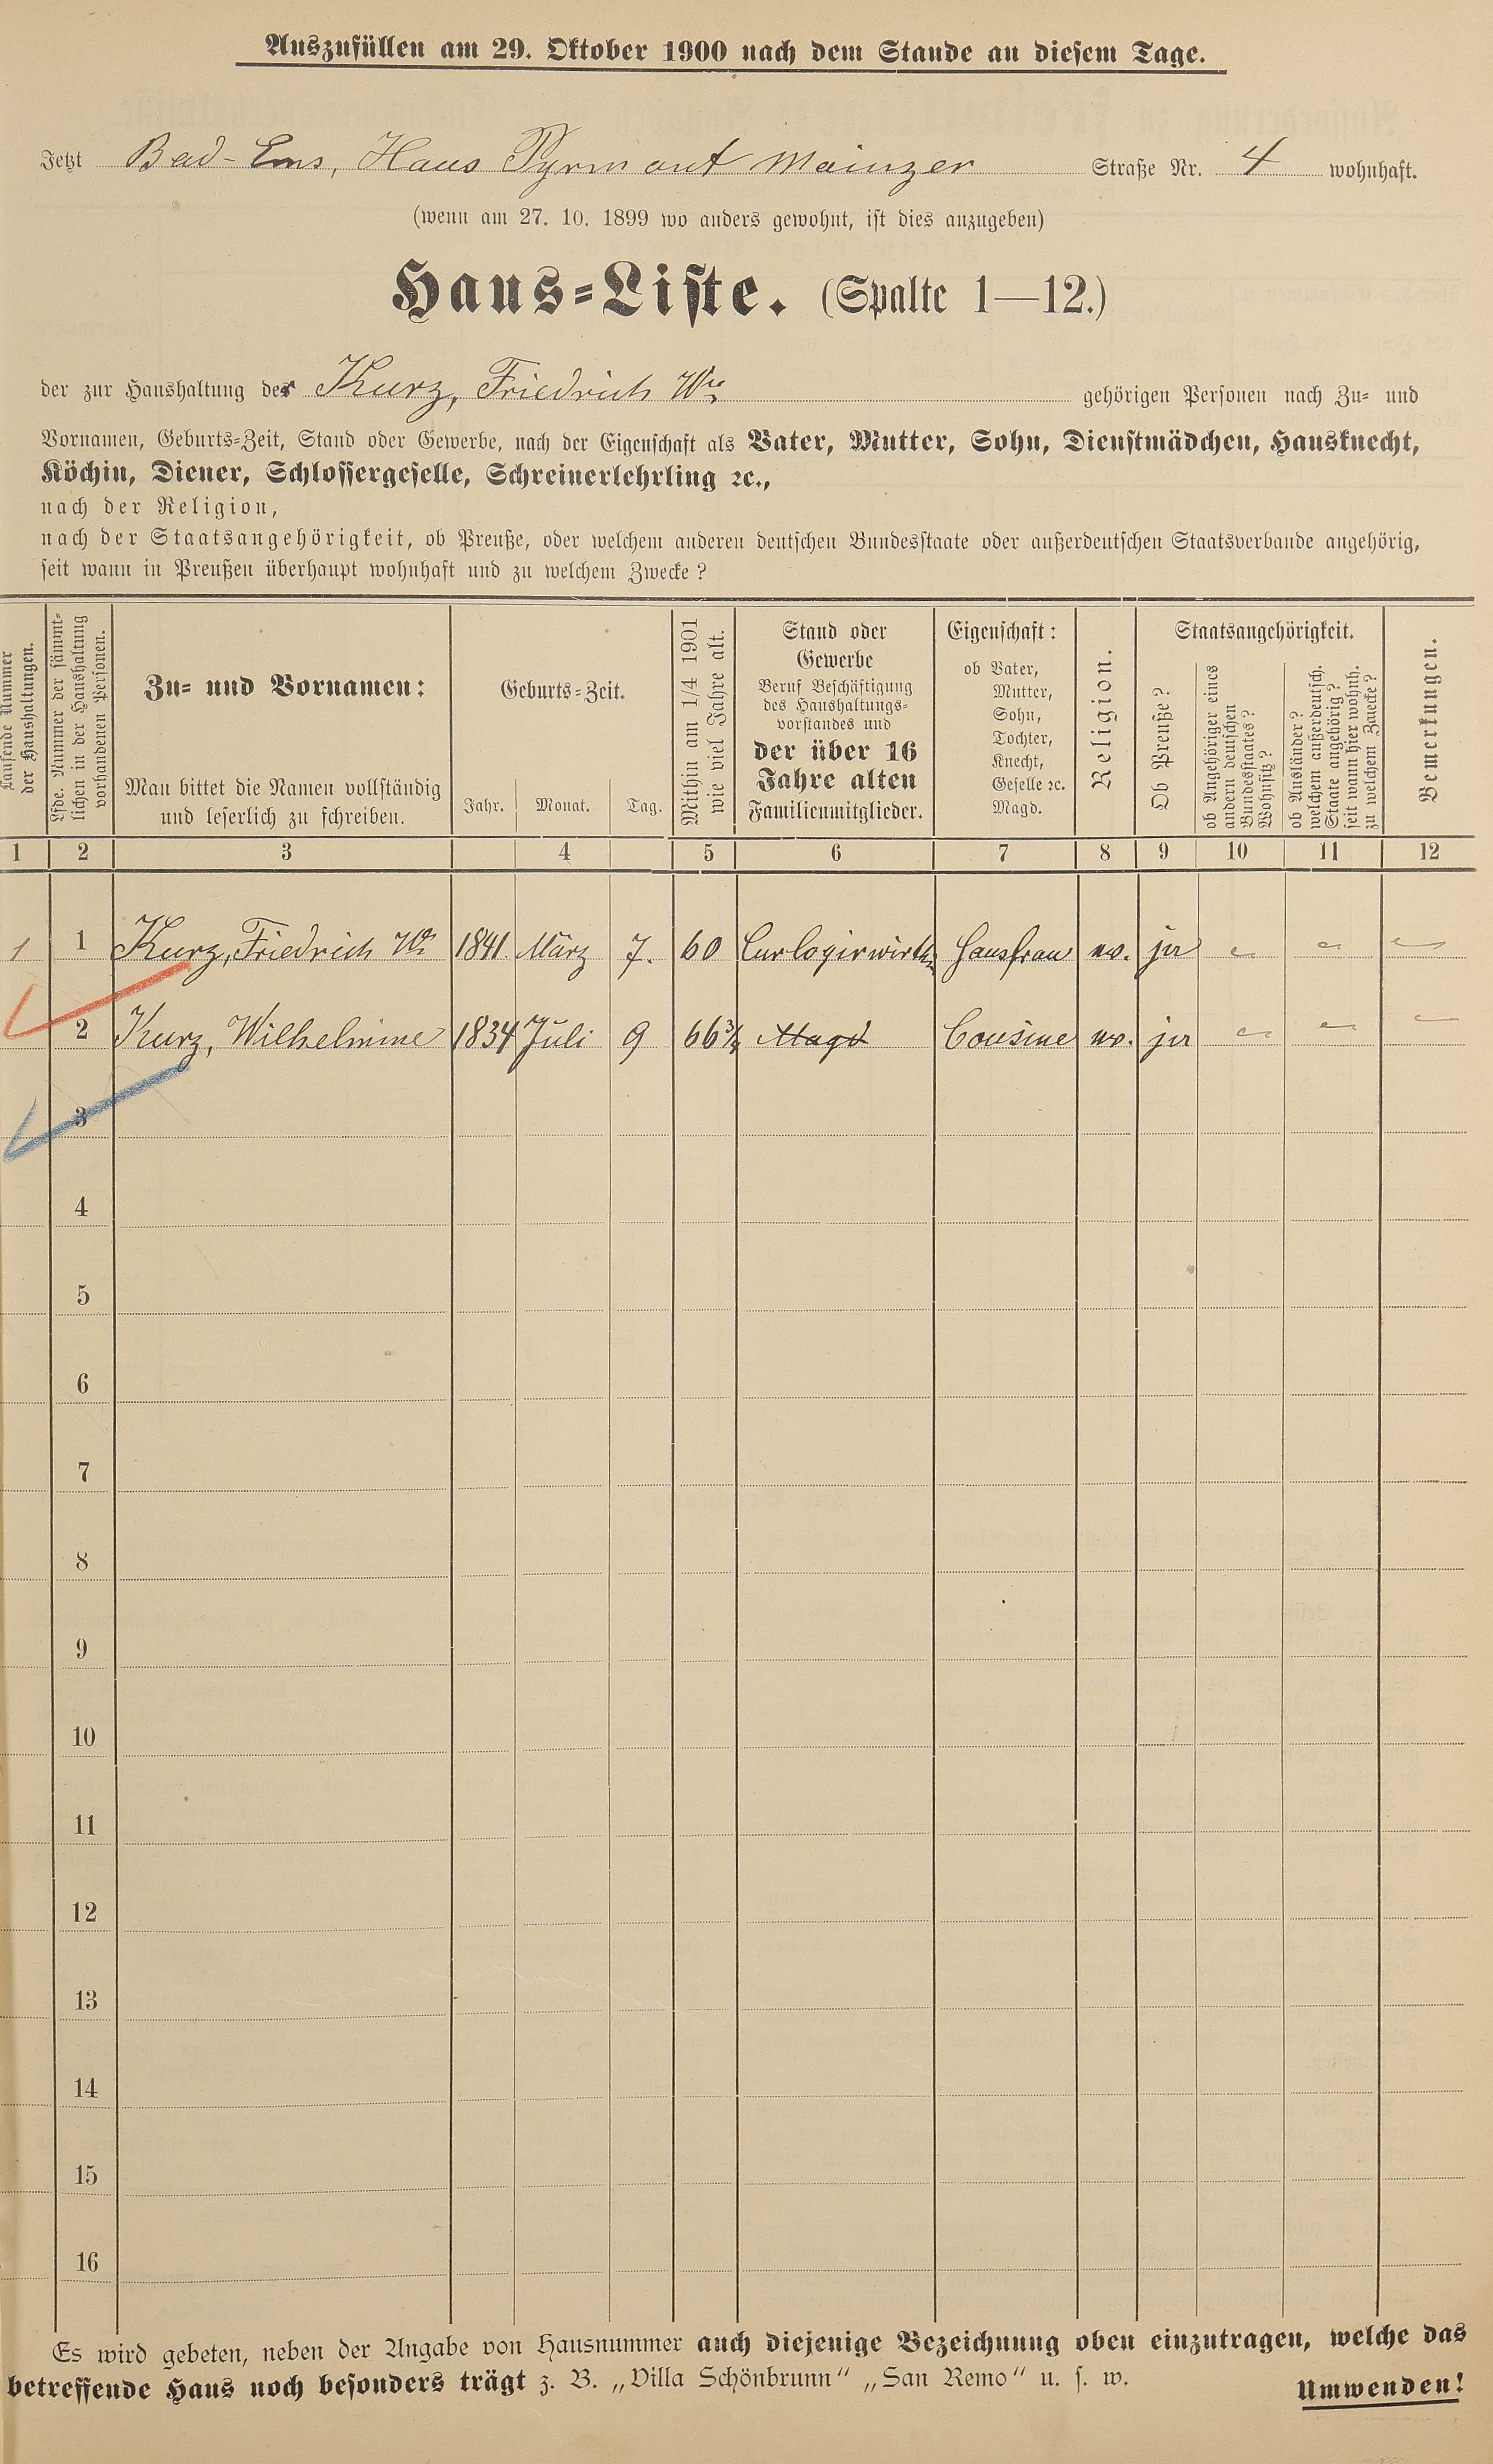 Auszufüllen am 29. Oktober 1900 nach dem Stande an diesem Tage.
Jetzt Bad-Ems, Haus Pyrmont Mainzer Straße Nr. 4 wohnhaft.
(wenn am 27. 10. 1899 wo anders gewohnt, ist dies anzugeben)
Haus-Liste. (Spalte 1—12.)
der zur Haushaltung der Kurz, Friedrich Wwe gehörigen Personen nach Zu- und
Vornamen, Geburts-Zeit, Stand oder Gewerbe, nach der Eigenschaft als Vater, Mutter, Sohn, Dienstmädchen, Hausknecht,
Köchin, Diener, Schlossergeselle, Schreinerlehrling ꝛc.,
nach der Religion,
nach der Staatsangehörigkeit, ob Preuße, oder welchem anderen deutschen Bundesstaate oder außerdeutschen Staatsverbande angehörig,
seit wann in Preußen überhaupt wohnhaft und zu welchem Zwecke?
Laufende Nummer
der Haushaltungen.
Lfde. Nummer der sämmt-
lichen in der Haushaltung
vorhandenen Personen.
Zu- und Vornamen:
Man bittet die Namen vollständig
und leserlich zu schreiben.
Geburts-Zeit.
Jahr. Monat. Tag.
Mithin am 1/4 1901
wie viel Jahre alt.
Stand oder
Gewerbe
Beruf Beschäftigung
des Haushaltungs-
vorstandes und
der über 16
Jahre alten
Familienmitglieder.
Eigenschaft:
ob Vater,
Mutter,
Sohn,
Tochter,
Knecht,
Geselle ꝛc.
Magd.
Religion.
Staatsangehörigkeit.
Ob Preuße?
ob Angehöriger eines
andern deutschen
Bundesstaates?
Wohnsitz?
ob Ausländer?
welchem außerdeutsch.
Staate angehörig?
seit wann hier wohnh.
zu welchem Zwecke?
Bemerkungen.
1 2 3 4 5 6 7 8 9 10 11 12
1 1 Kurz, Friedrich We 1841. März 7. 60 Curlogirwirthin Hausfrau ev. ja
2 Kurz, Wilhelmine 1834 Juli 9 66 3/4 Magd Cousine ev. ja
3
4
5
6
7
8
9
10
11
12
13
14
15
16
Es wird gebeten, neben der Angabe von Hausnummer auch diejenige Bezeichnung oben einzutragen, welche das
betreffende Haus noch besonders trägt z. B. „Villa Schönbrunn“ „San Remo“ u. s. w.
Umwenden!